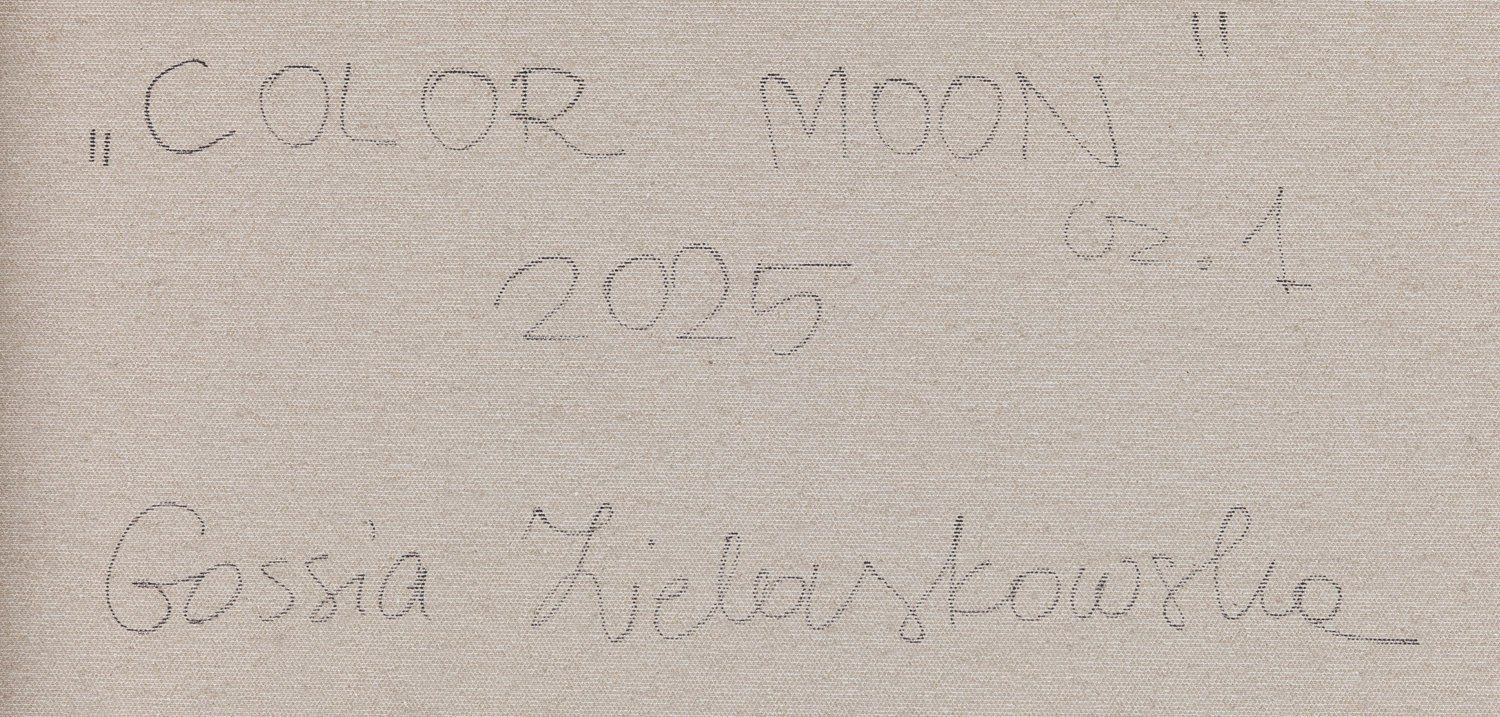 „COLOR MOON"
cz.1
2025
Gossia Zielaskowska